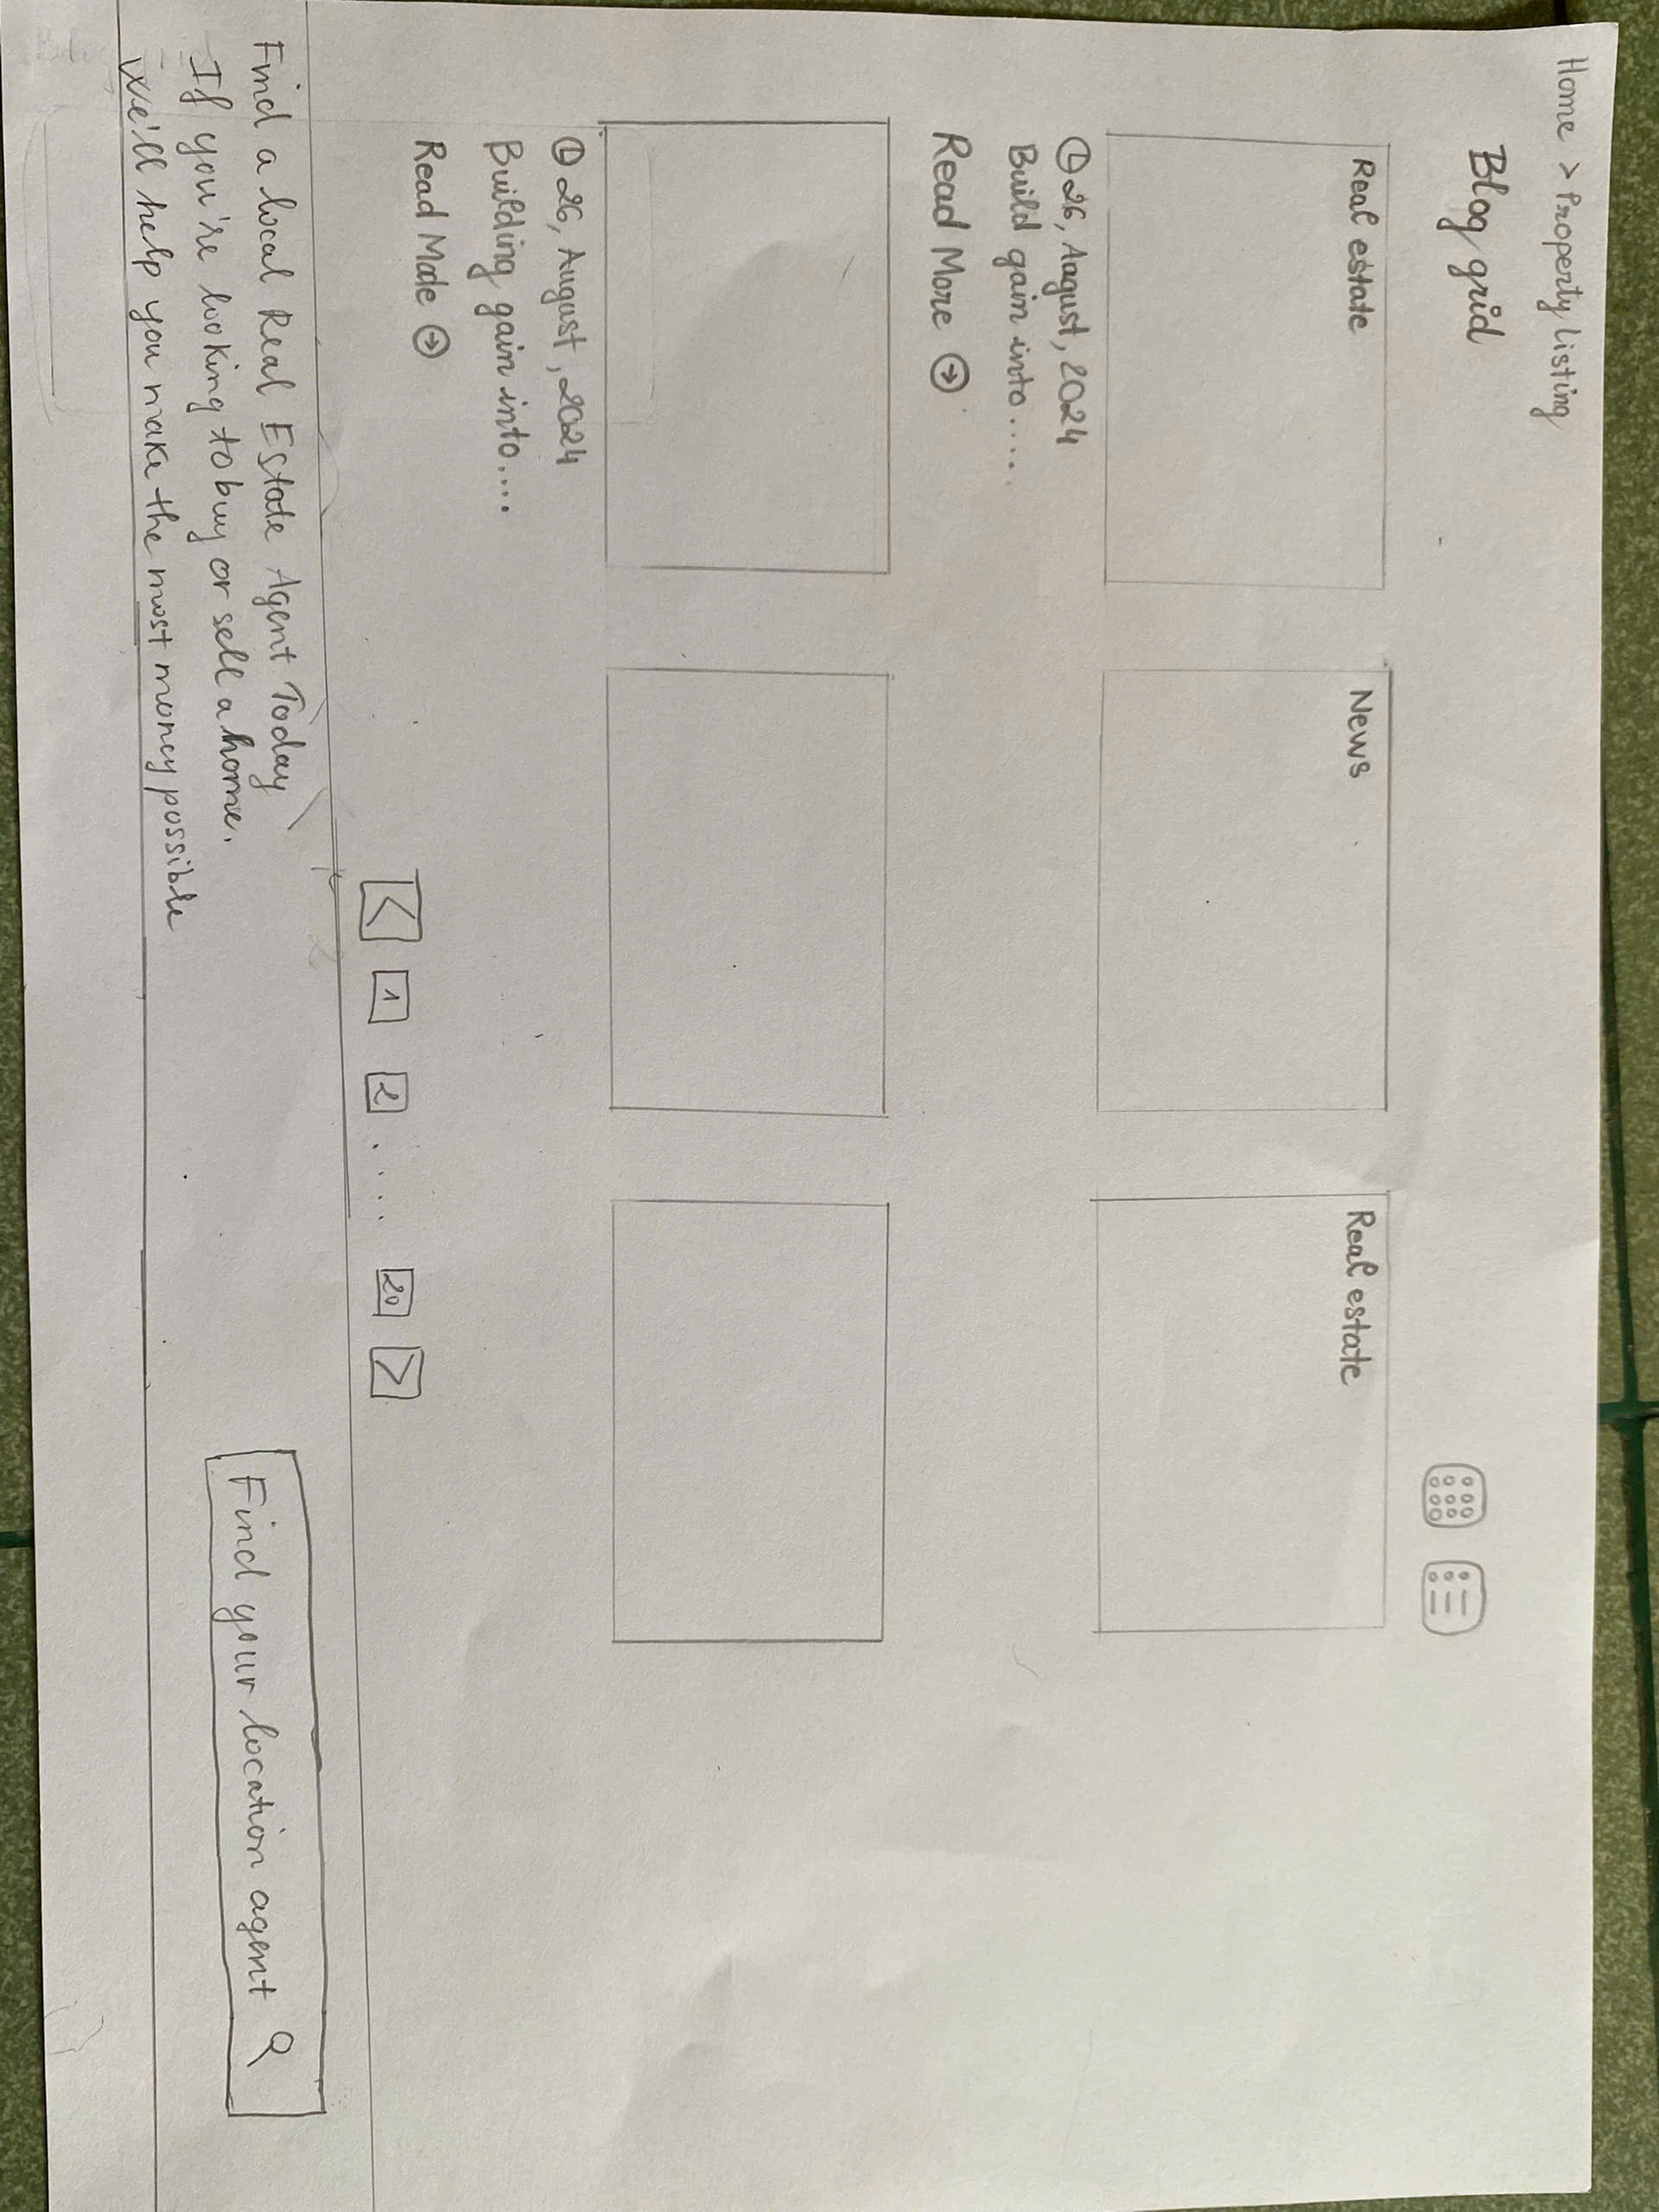 Home > Property listing
Blog grid
Real estate
News
Real estate
26, August, 2024
Build gain into....
Read More
26, August, 2024
Building gain into....
Read Mode
< 1 2 .... 20 >
Find a local Real Estate Agent Today
If you're looking to buy or sell a home.
We'll help you make the most money possible
Find your location agent